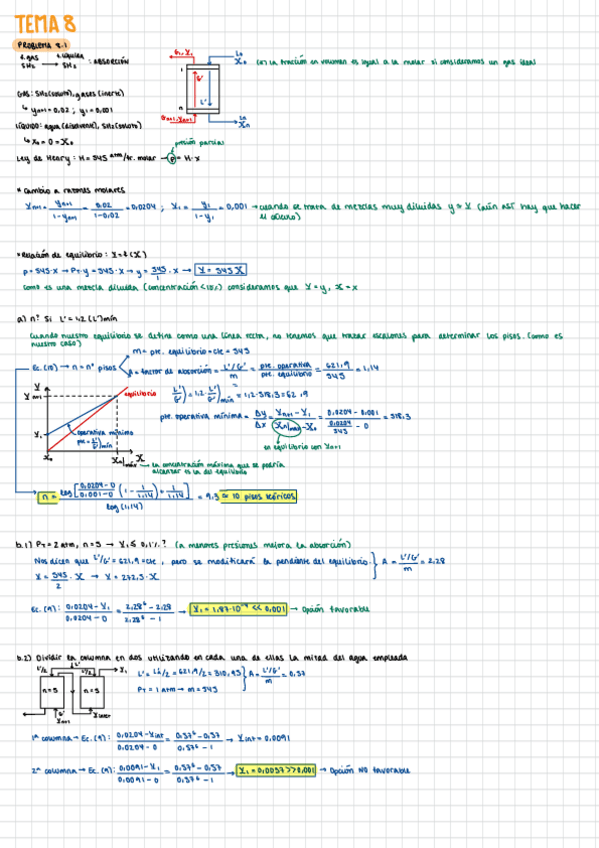 TEMA 8
PROBLEMA 8.1
f. gas f. líquida
SH₂ → SH₂ : ABSORCIÓN
G₁, Y₁
L₀
X₀
(*) La fracción en volumen es igual a la molar si consideramos un gas ideal
1
G'
L'
n
Gn+1, Yn+1
Ln
Xn
GAS: SH₂ (soluto), gases (inerte)
↳ yn+1 = 0,02 ; y₁ = 0,001
LÍQUIDO: agua (disolvente), SH₂ (soluto)
↳ x₀ = 0 = X₀
presión parcial
Ley de Henry: H = 545 atm/fr. molar → p = H·x
* Cambio a razones molares
Yn+1 = yn+1 / (1 - yn+1) = 0,02 / (1 - 0,02) = 0,0204 ; Y₁ = y₁ / (1 - y₁) = 0,001 → cuando se trata de mezclas muy diluidas y ≈ Y (aún así hay que hacer
el cálculo)
* Relación de equilibrio: Y = f(X)
p = 545·x → PT·y = 545·x → y = 545/1 · x → Y = 545 X
Como es una mezcla diluida (concentración < 10%) consideramos que Y = y, X = x
a) n? Si L' = 1,2 (L')mín
Cuando nuestro equilibrio se define como una línea recta, no tenemos que trazar escalones para determinar los pisos. (como es
nuestro caso)
m = pte. equilibrio = cte = 545
Ec. (10) → n = nº pisos
A = factor de absorción = L'/G' / m = pte. operativa / pte. equilibrio = 621,9 / 545 = 1,14
Y
Yn+1
equilibrio
(L'/G') = 1,2 (L'/G')mín = 1,2·518,3 = 621,9
pte. operativa mínima = ΔY/ΔX = (Yn+1 - Y₁) / (Xn|max - X₀) = (0,0204 - 0,001) / (0,0204/545 - 0) = 518,3
Y₁
operativa mínima
pte = L'/G')mín
en equilibrio con Yn+1
X₀
Xn|máx
X
→ la concentración máxima que se podría
alcanzar es la del equilibrio
n = log[(0,0204-0)/(0,001-0) (1 - 1/1,14) + 1/1,14] / log(1,14) = 9,3 ≈ 10 pisos teóricos
b.1) PT = 2 atm, n = 5 → Y₁ ≤ 0,1%? (a menores presiones mejora la absorción)
Nos dicen que L'/G' = 621,9 = cte, pero se modificará la pendiente del equilibrio.
A = L'/G' / m = 2,28
Y = 545/2 · X → Y = 272,5·X
Ec. (9): (0,0204 - Y₁) / (0,0204 - 0) = (2,28⁶ - 2,28) / (2,28⁶ - 1) → Y₁ = 1,87·10⁻⁴ << 0,001 → Opción favorable
b.2) Dividir la columna en dos utilizando en cada una de ellas la mitad del agua empleada
L'/2
L'/2
Y₁
L' = L'₀/2 = 621,9/2 = 310,95
A = L'/G' / m = 0,57
PT = 1 atm → m = 545
n = 5
n = 5
G'
Yn+1
Yinter
1ª columna → Ec. (9): (0,0204 - Yint) / (0,0204 - 0) = (0,57⁶ - 0,57) / (0,57⁶ - 1) → Yint = 0,0091
2ª columna → Ec. (9): (0,0091 - Y₁) / (0,0091 - 0) = (0,57⁶ - 0,57) / (0,57⁶ - 1) → Y₁ = 0,0037 >> 0,001 → Opción NO favorable